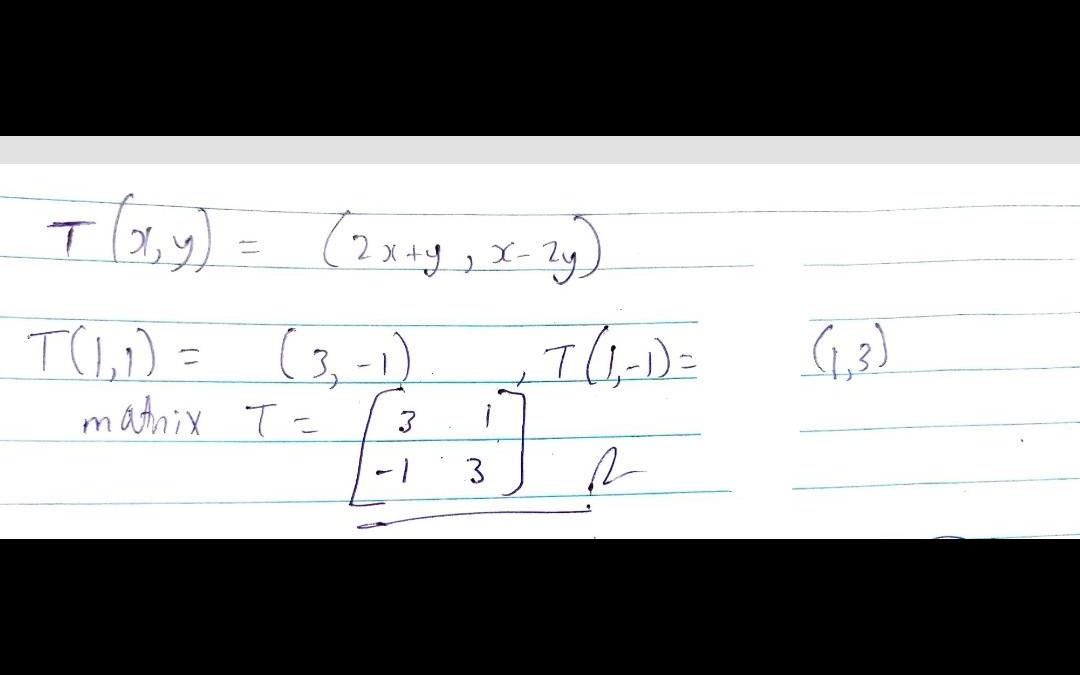 T(x,y) = (2x+y, x-2y)
T(1,1) = (3,-1), T(1,-1)= (1,3)
matrix T = [3 1
-1 3]